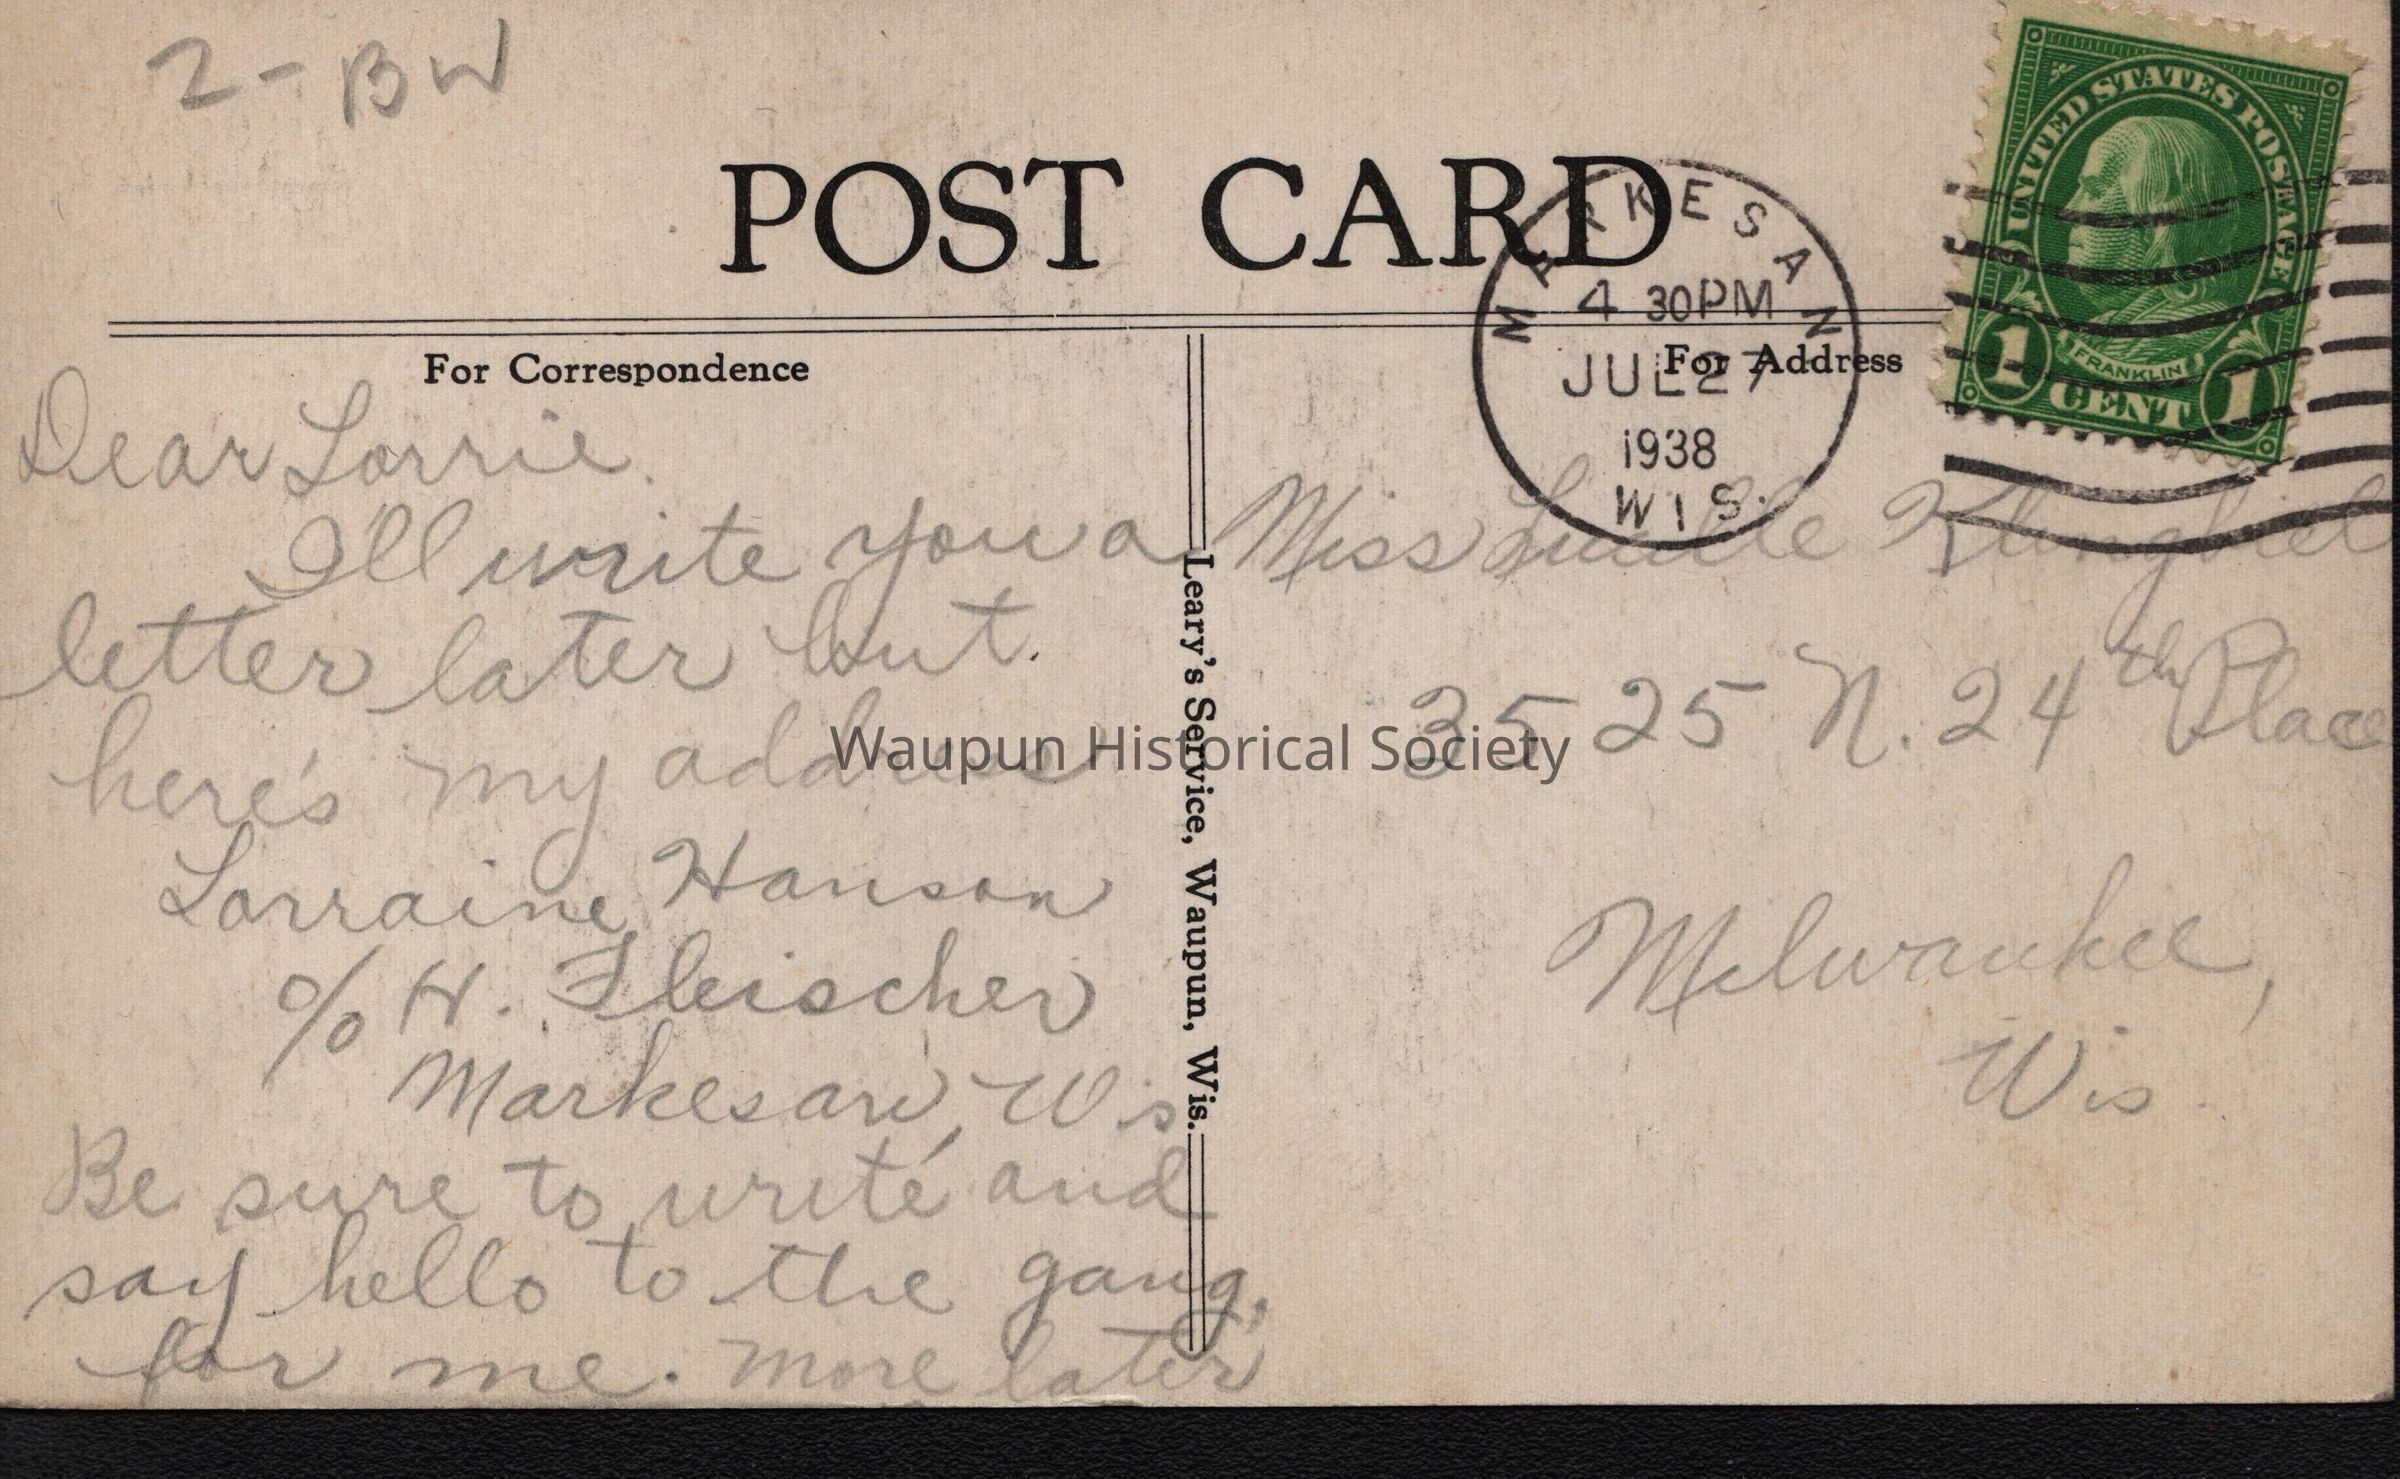 2-BW
POST CARD
MARKESAN
4 30PM
JUL 27
1938
WIS.
UNITED STATES POSTAGE
FRANKLIN
1 CENT 1
For Correspondence
For Address
Dear Lorrie.
I'll write you a
letter later but.
here's my address
Lorraine Hanson
c/o H. Fleischer
Markesan, Wis
Be sure to write and
say hello to the gang,
for me. More later
Leary's Service, Waupun, Wis.
Miss Lucille
3525 N. 24th Place
Milwaukee,
Wis.
Waupun Historical Society